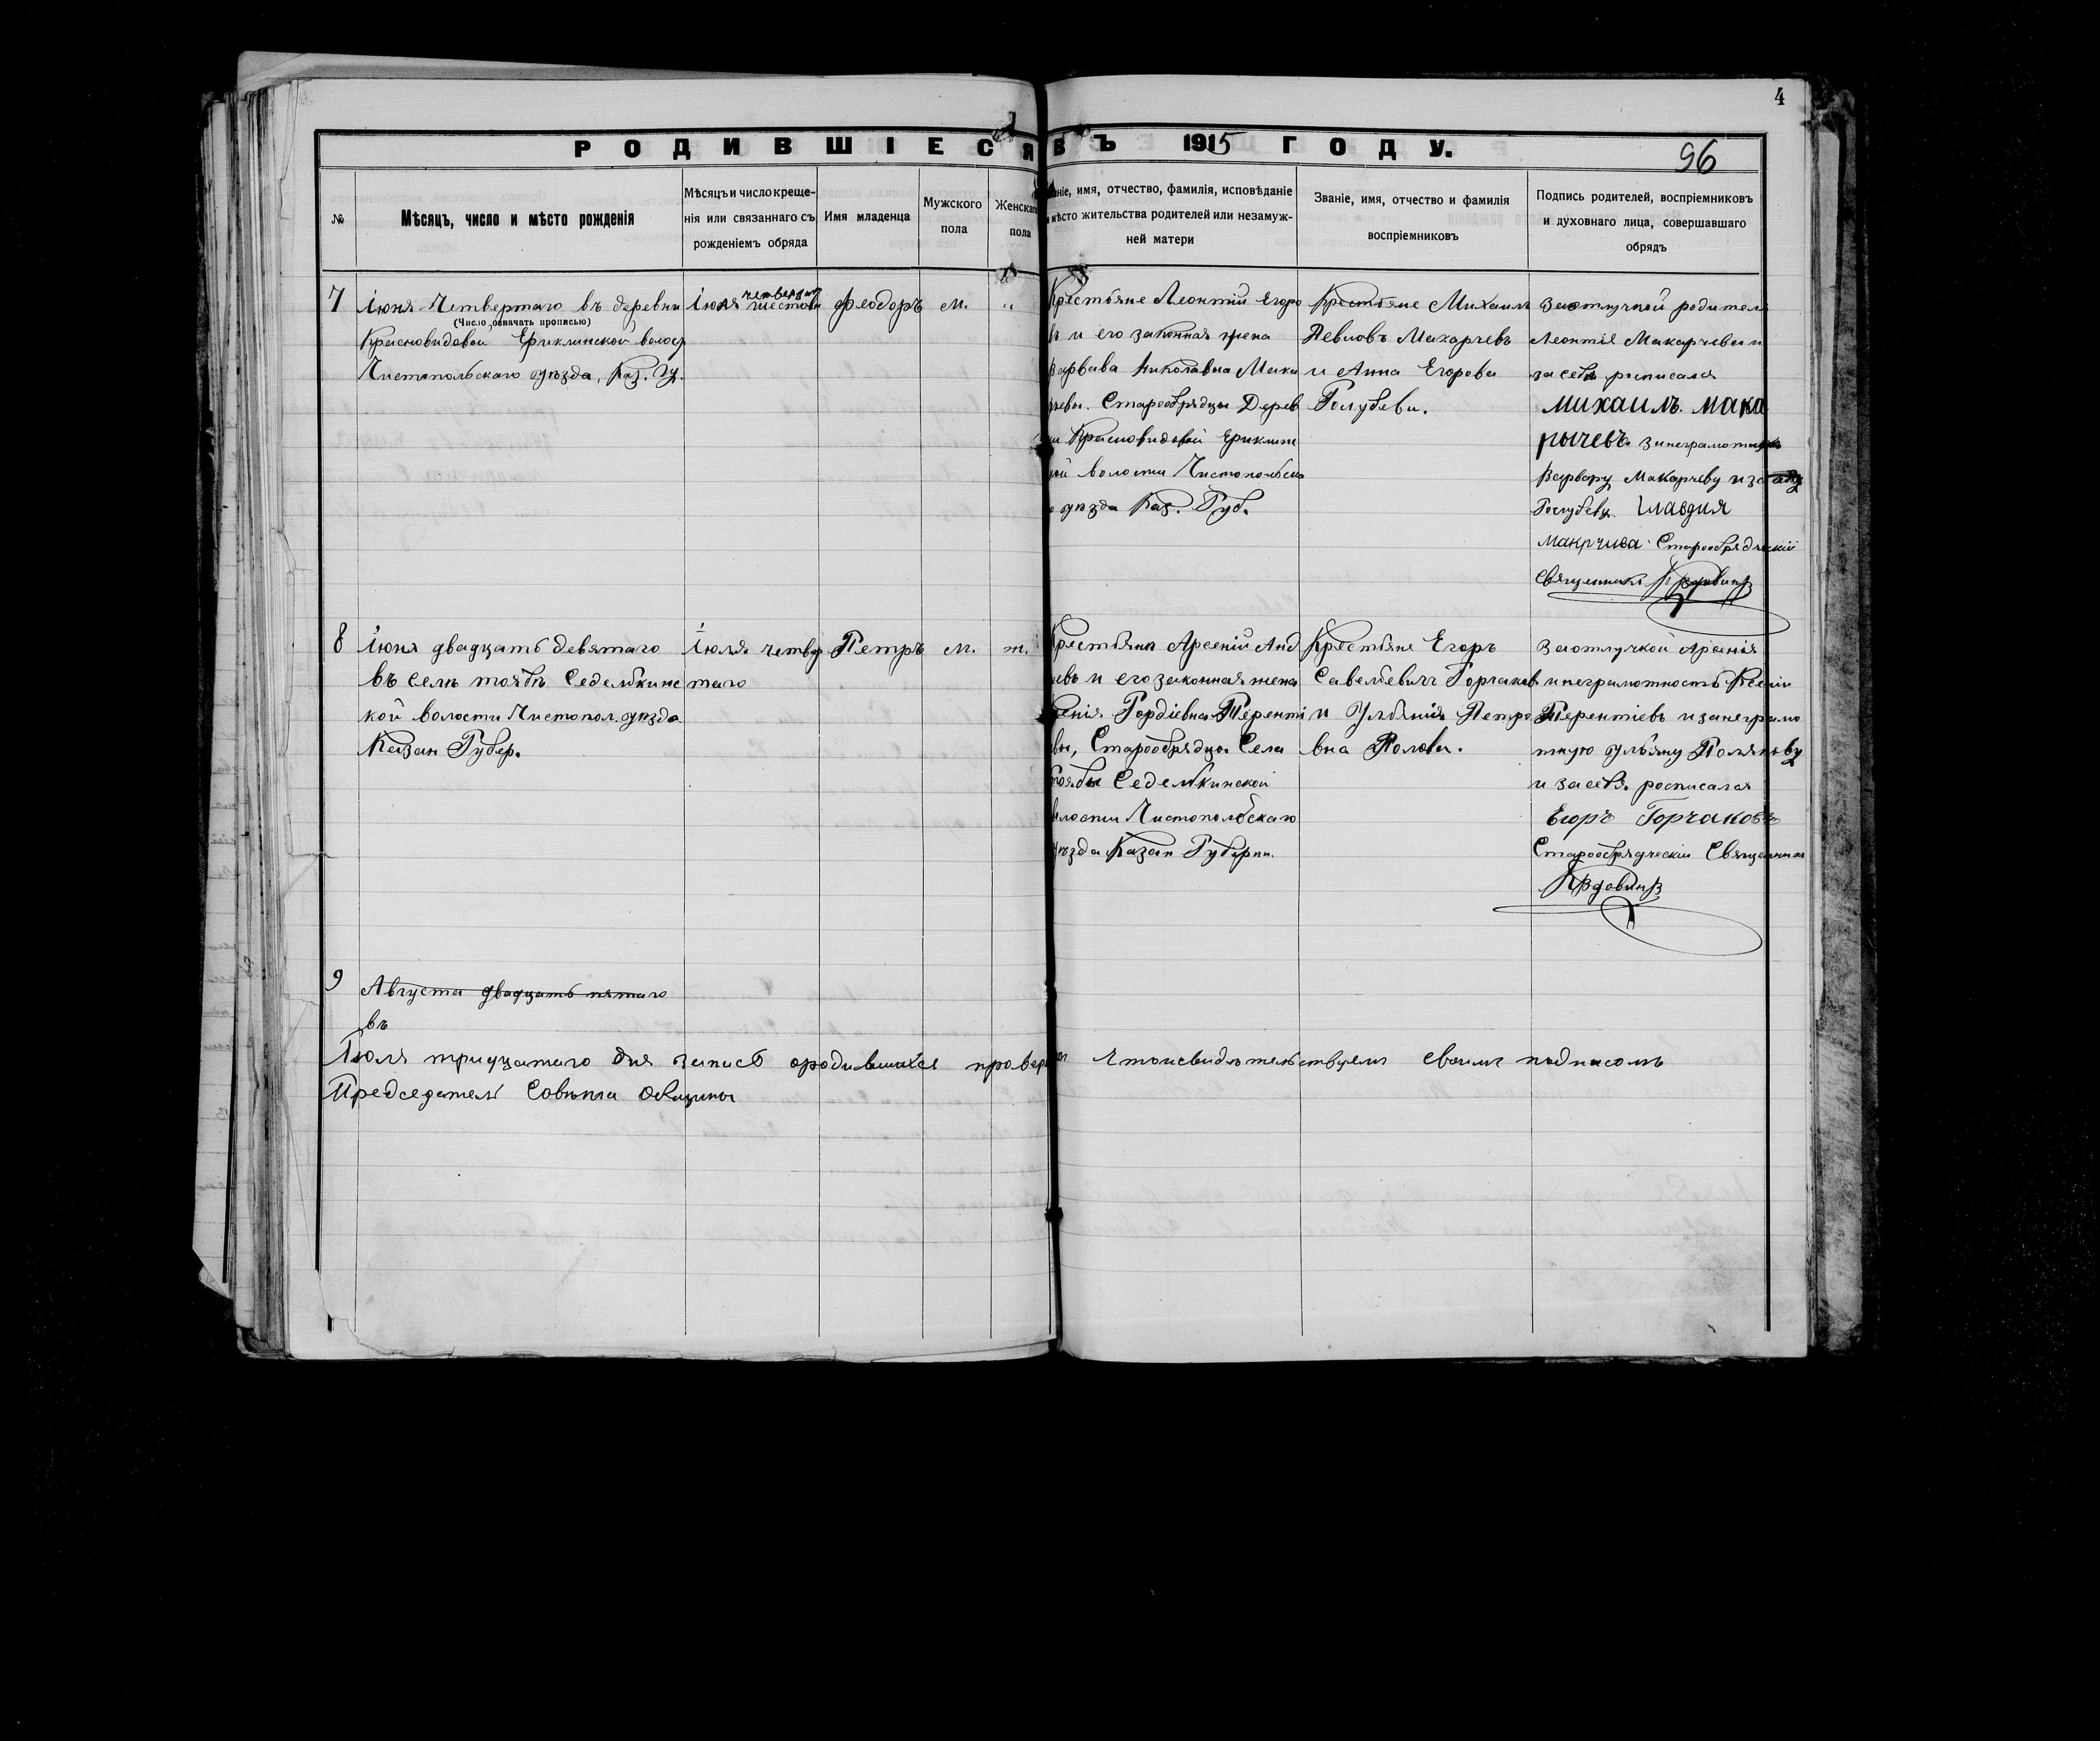 4
РОДИВШІЕСЯ ВЪ 1915 ГОДУ.
96
№
Мѣсяцъ, число и мѣсто рожденія
Мѣсяцъ и число креще-
нія или связаннаго съ
рожденіемъ обряда
Имя младенца
Мужского
пола
Женскаго
пола
аніе, имя, отчество, фамилія, исповѣданіе
и мѣсто жительства родителей или незамуж-
ней матери
Званіе, имя, отчество и фамилія
воспріемниковъ
Подпись родителей, воспріемниковъ
и духовнаго лица, совершавшаго
обрядъ
7
Іюня Четвертаго въ деревни
(Число означать прописью)
Красновидовои Ериклинской волос
Чистопольскаго уѣзда, Каз. Гу.
Іюня шестова
Феодоръ
м.
"
Крестьяне Леонтій Егоро
въ и его законная жена
Варвава Николавна Мака
рчевы. Старообрядцы Дерев
ни Красновидовой Ериклин
кой волости Чистопольска
о уѣзда Каз. Губ.
Крестьяне Михаилъ
Макарчевъ
и Анна Егорова
Голубеви.
Заотлучкой родителя
Леонтія Макарчева и
за себя росписался
Михаилъ Мака
рычевъ.
Варвару Макарчеву
Голубеву.
Старообрядческій
Священникъ
8
Іюня двадцать девятаго
въ селѣ тоябѣ Седелькинс
кой волости Чистопол. уѣзда
Казан Губер.
Іюля четвер
таго
Петръ
м.
Крестьяни Арсеній Анд
евъ и его законная жена
сенія Гордіевна Теренті
вы, Старообрядцы Села
тоябы Седелькинской
волости Чистопольскаго
уѣзда Казан Губерни.
Крестьяне Егоръ
Савельевичъ Горчаков
и Улянія Петро
вна
Заотлучкой Арсенія
и неграмотность Ксеніи
Терентіевъ и занеграмо
тную ульяну
и за себя росписался
Егоръ Горчаковъ
Старообрядческіи Священник
9
Августа двадцать пятаго
въ
Іюля тридцатаго дня запись ородившихся провер Что и свидѣтельствуем своим подписомъ
Председатель Совѣта Общины